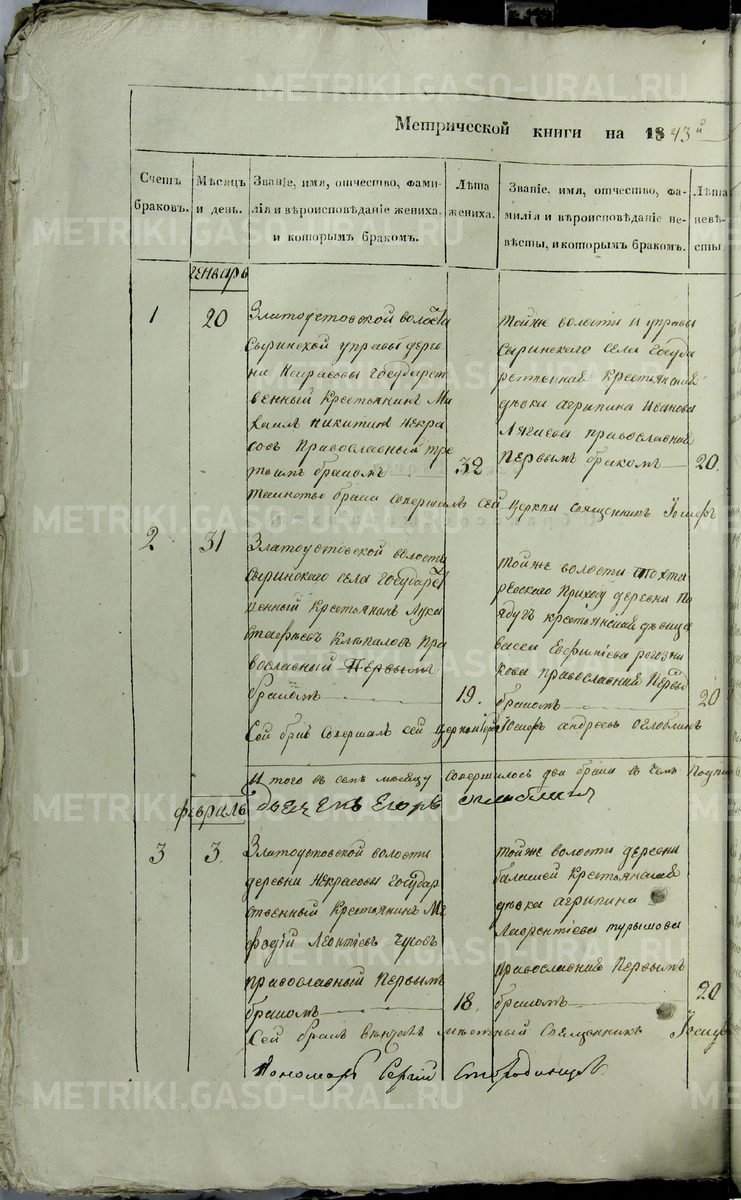 Метрической книги на 1843й
Счетъ браковъ.
Мѣсяцъ и день.
Званіе, имя, отчество, фами-
лія и вѣроисповѣданіе жениха.
и которымъ бракомъ.
Лѣта жениха.
Званіе, имя, отчество, фа-
милія и вѣроисповѣданіе не-
вѣсты, и которымъ бракомъ.
Лѣта невѣ-
сты.
генварь
1
20
Златоустовской волости
Сыринской управы дерев
ни Некрасовы государст
венный крестьянинъ Ми
хаилъ Никитинъ Некра
совъ православный тре
тьимъ бракомъ
32
тойже волости и управы
Сыринского села государ
ственная крестьянская
дѣвка агрипина Иванова
православная
первымъ бракомъ
20.
брака совершалъ сей церкви священникъ Іосифъ
2
31
Златоустовской волости
Сыринского села государ
крестьянинъ Лука
Клепаловъ пра
вославный первымъ
бракомъ
19.
тойже волости
прихода деревни
крестьянская дѣвица
православная первы
бракомъ
20
Сей бракъ совершалъ сей церкви Іерей Іосифъ андреевъ Оглоблинъ
Итого въ семъ мѣсяцу совершилось два брака въ чемъ
дьячекъ Егоръ
февраль
3
3.
Златоустовской волости
деревни Некрасовы государ
ственный крестьянинъ Ме
фодій Леонтіевъ Чусовъ
православный первымъ
бракомъ
18.
тойже волости деревни
крестьянская
дѣвка агрипина
Лаврентіева турышова
православная первымъ
бракомъ
20
Сей бракъ вѣнчалъ мѣстный священникъ
пономарь Сергій Стародинцевъ
METRIKI.GASO-URAL.RU